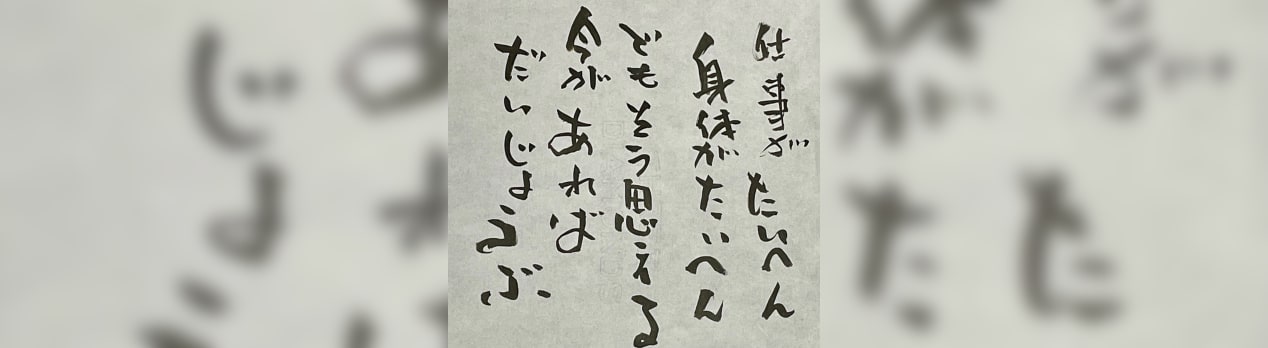 仕事がたいへん
身体がたいへん
どもそう思える
今があれば
だいじょうぶ